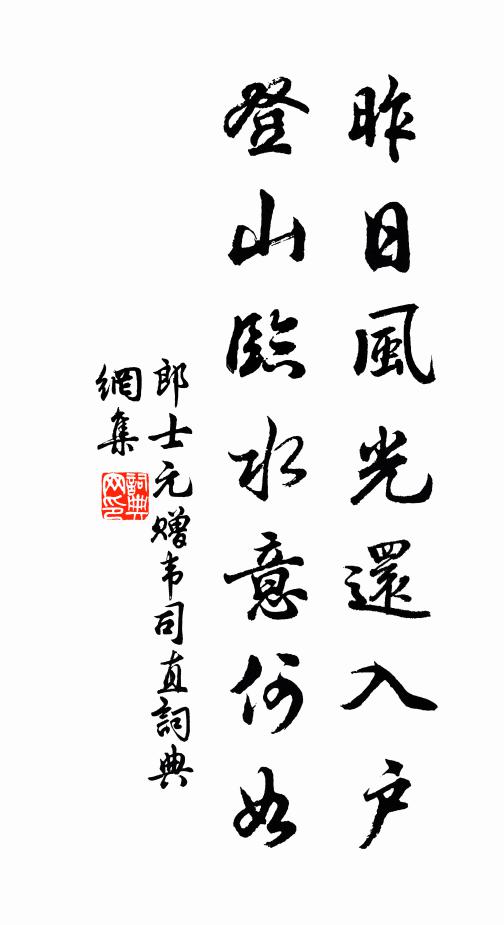 昨日風光還入户
登山臨水意何如
郎士元赠韦司直詞典
網集
詞典
网印